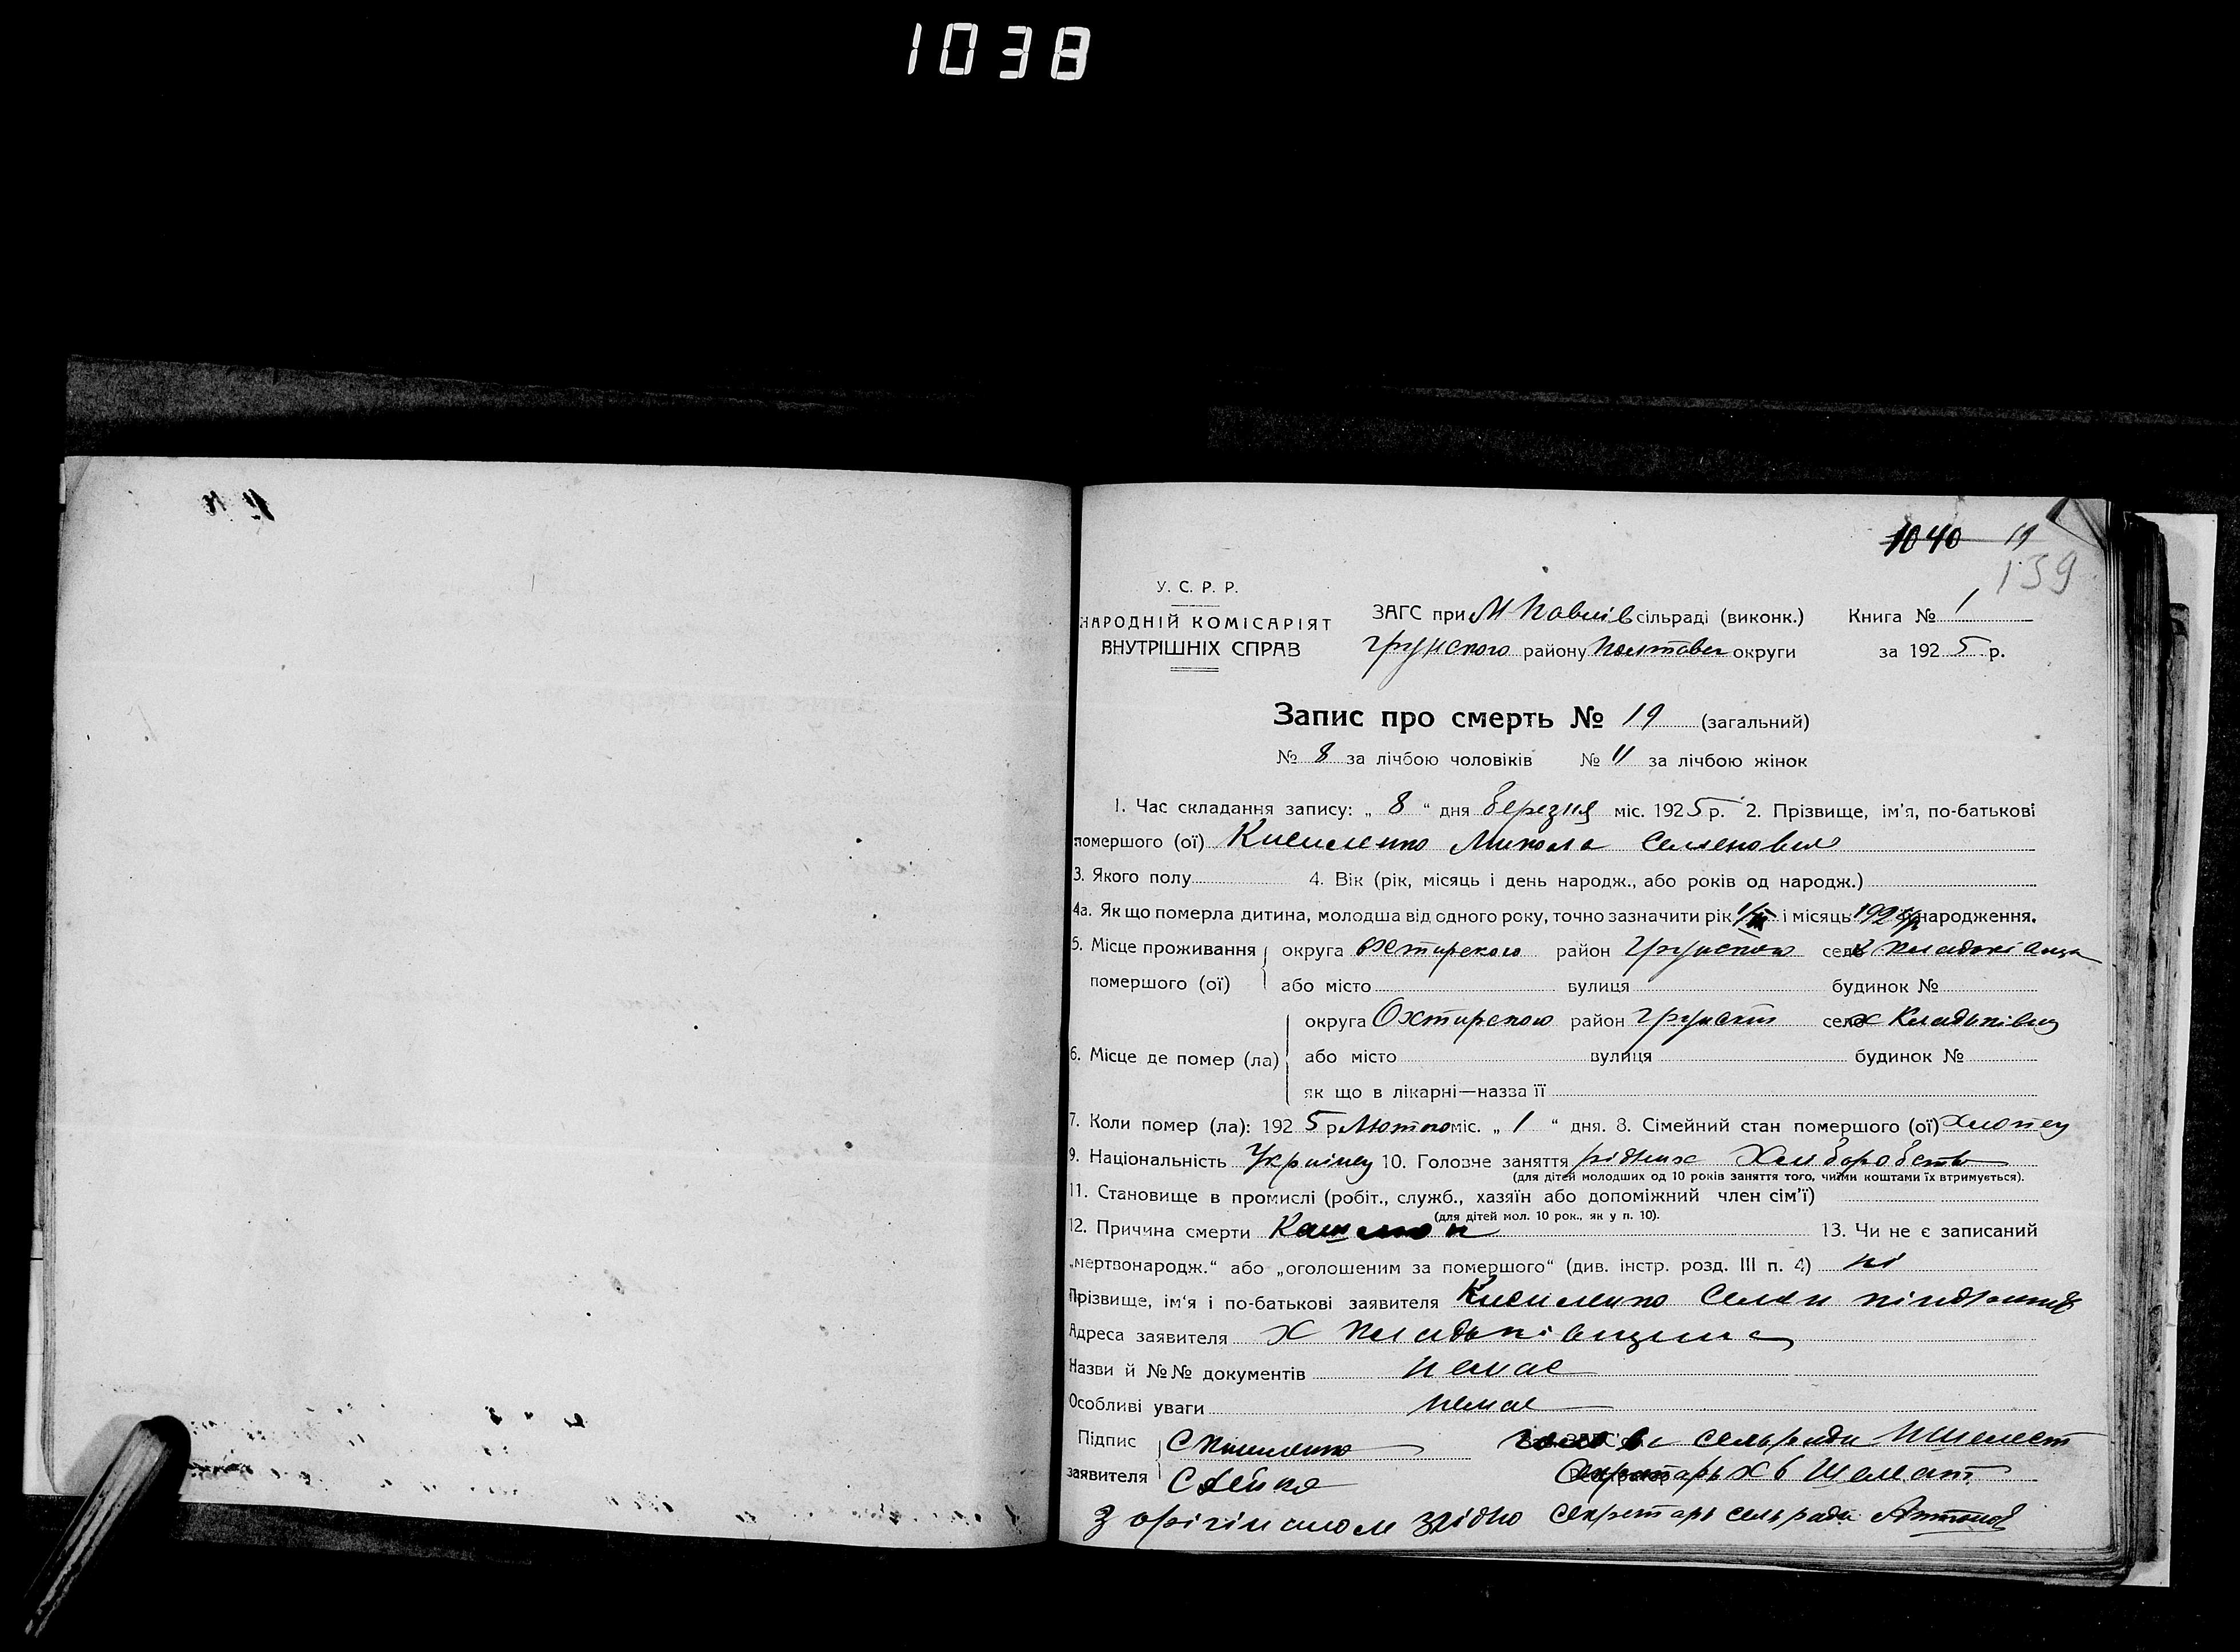 1038
1040 19
139
У. С. Р. Р.
НАРОДНІЙ КОМІСАРІЯТ
ВНУТРІШНІХ СПРАВ
ЗАГС при М Павлів сільраді (виконк.) Книга № 1
Грунского району Полтавск округи за 1925 р.
Запис про смерть № 19 (загальний)
№ 8 за лічбою чоловіків № 11 за лічбою жінок
1. Час складання запису: „ 8 “ дня березня міс. 1925 р. 2. Прізвище, ім'я, по-батькові
помершого (ої) Кисиленко Микола Семенович
3. Якого полу 4. Вік (рік, місяць і день народж., або років од народж.)
4а. Якщо померла дитина, молодша від одного року, точно зазначити рік і місяць народження.
5. Місце проживання помершого (ої) округа Охтирского район Грунского село х Кладьківщина
або місто вулиця будинок №
6. Місце де помер (ла) округа Охтирского район Грунск село х Кладьківщ
або місто вулиця будинок №
як що в лікарні—назва її
7. Коли помер (ла): 1925 р Лютого міс. „ 1 “ дня. 8. Сімейний стан помершого (ої) хлопец
9. Національність Украінец 10. Головне заняття рідних Хлиборобство
(для дітей молодших од 10 років заняття того, чиїми коштами їх втримується).
11. Становище в промислі (робіт., служб., хазяїн або допоміжний член сім'ї)
(для дітей мол. 10 рок., як у п. 10).
12. Причина смерти Кашлюк 13. Чи не є записаний
„мертвонародж.“ або „оголошеним за помершого“ (див. інстр. розд. III п. 4) ні
Прізвище, ім'я і по-батькові заявителя Кисиленко Семен
Адреса заявителя х Кладьківщина
Назви й №№ документів немае
Особливі уваги немае
Підпис заявителя С Кисиленко сельради Шелест
Секретарь Шелест
З орігіналом згідно Секретарь сельради